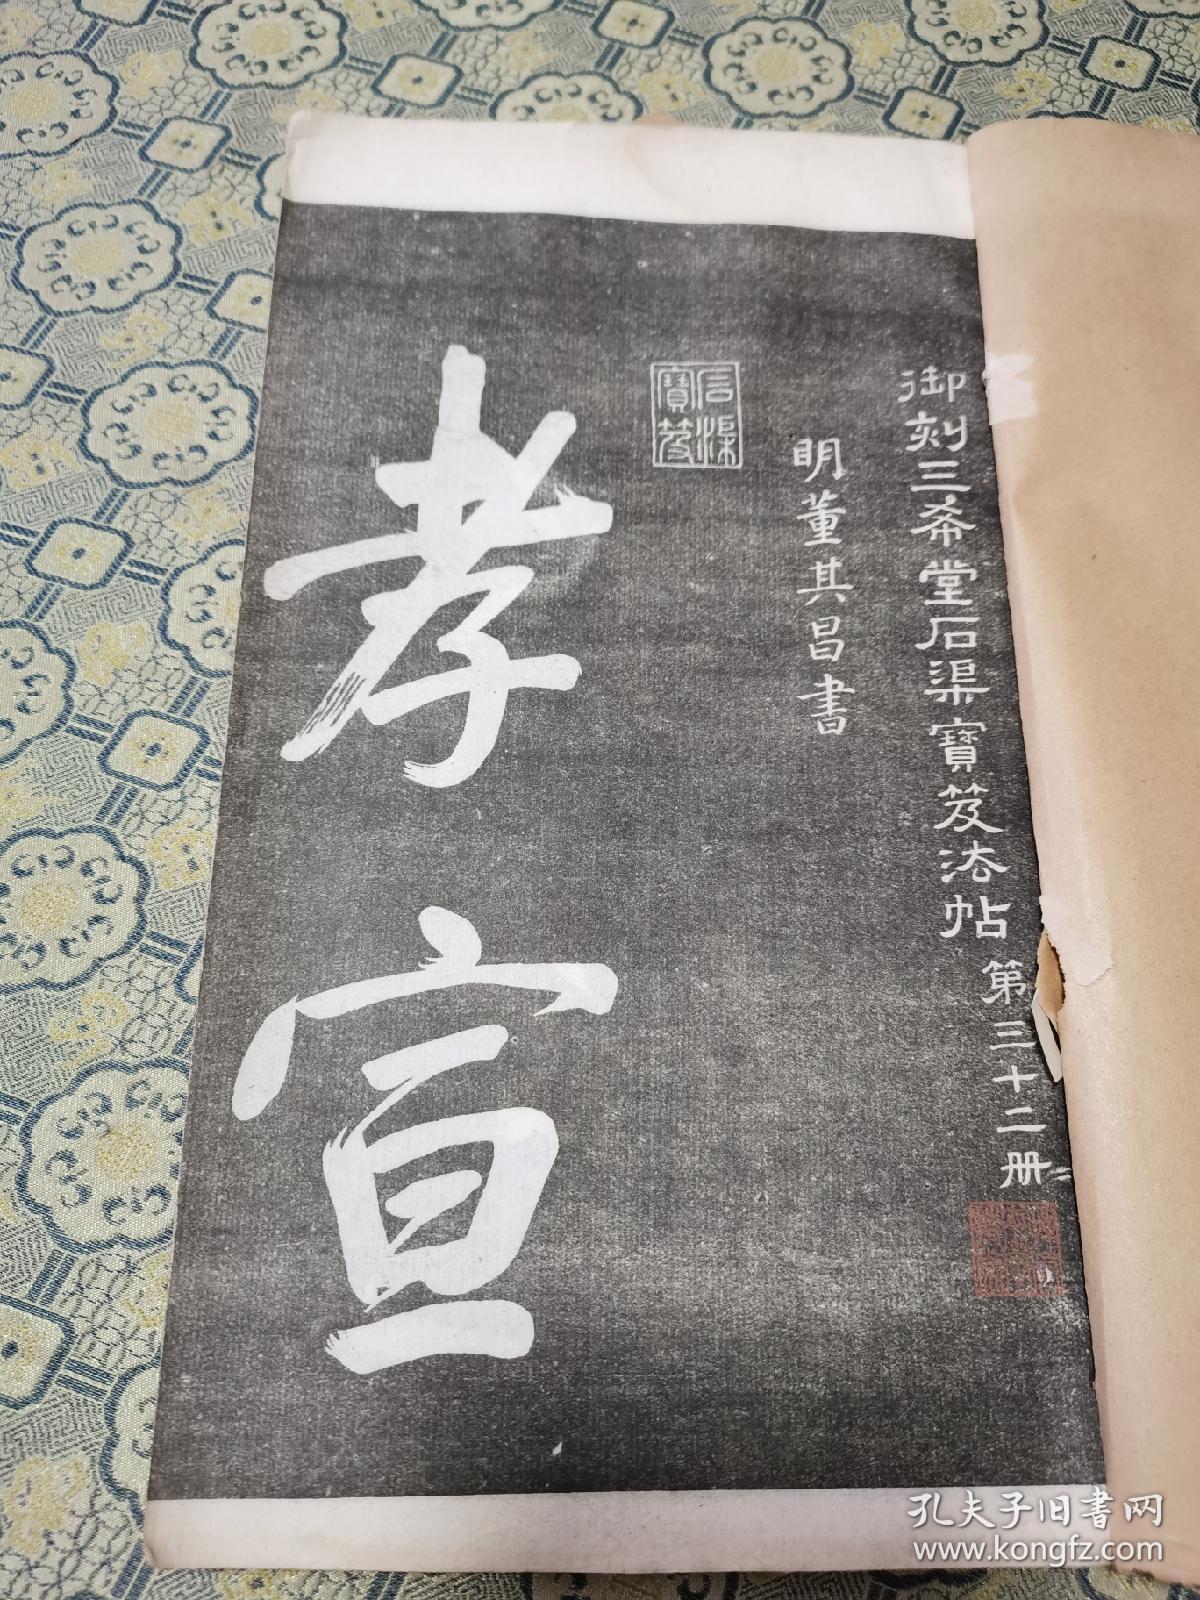 御刻三希堂石渠寶笈法帖 第三十二册
明董其昌書
石渠
寶笈
孝宣
孔夫子旧书网
www.kongfz.com